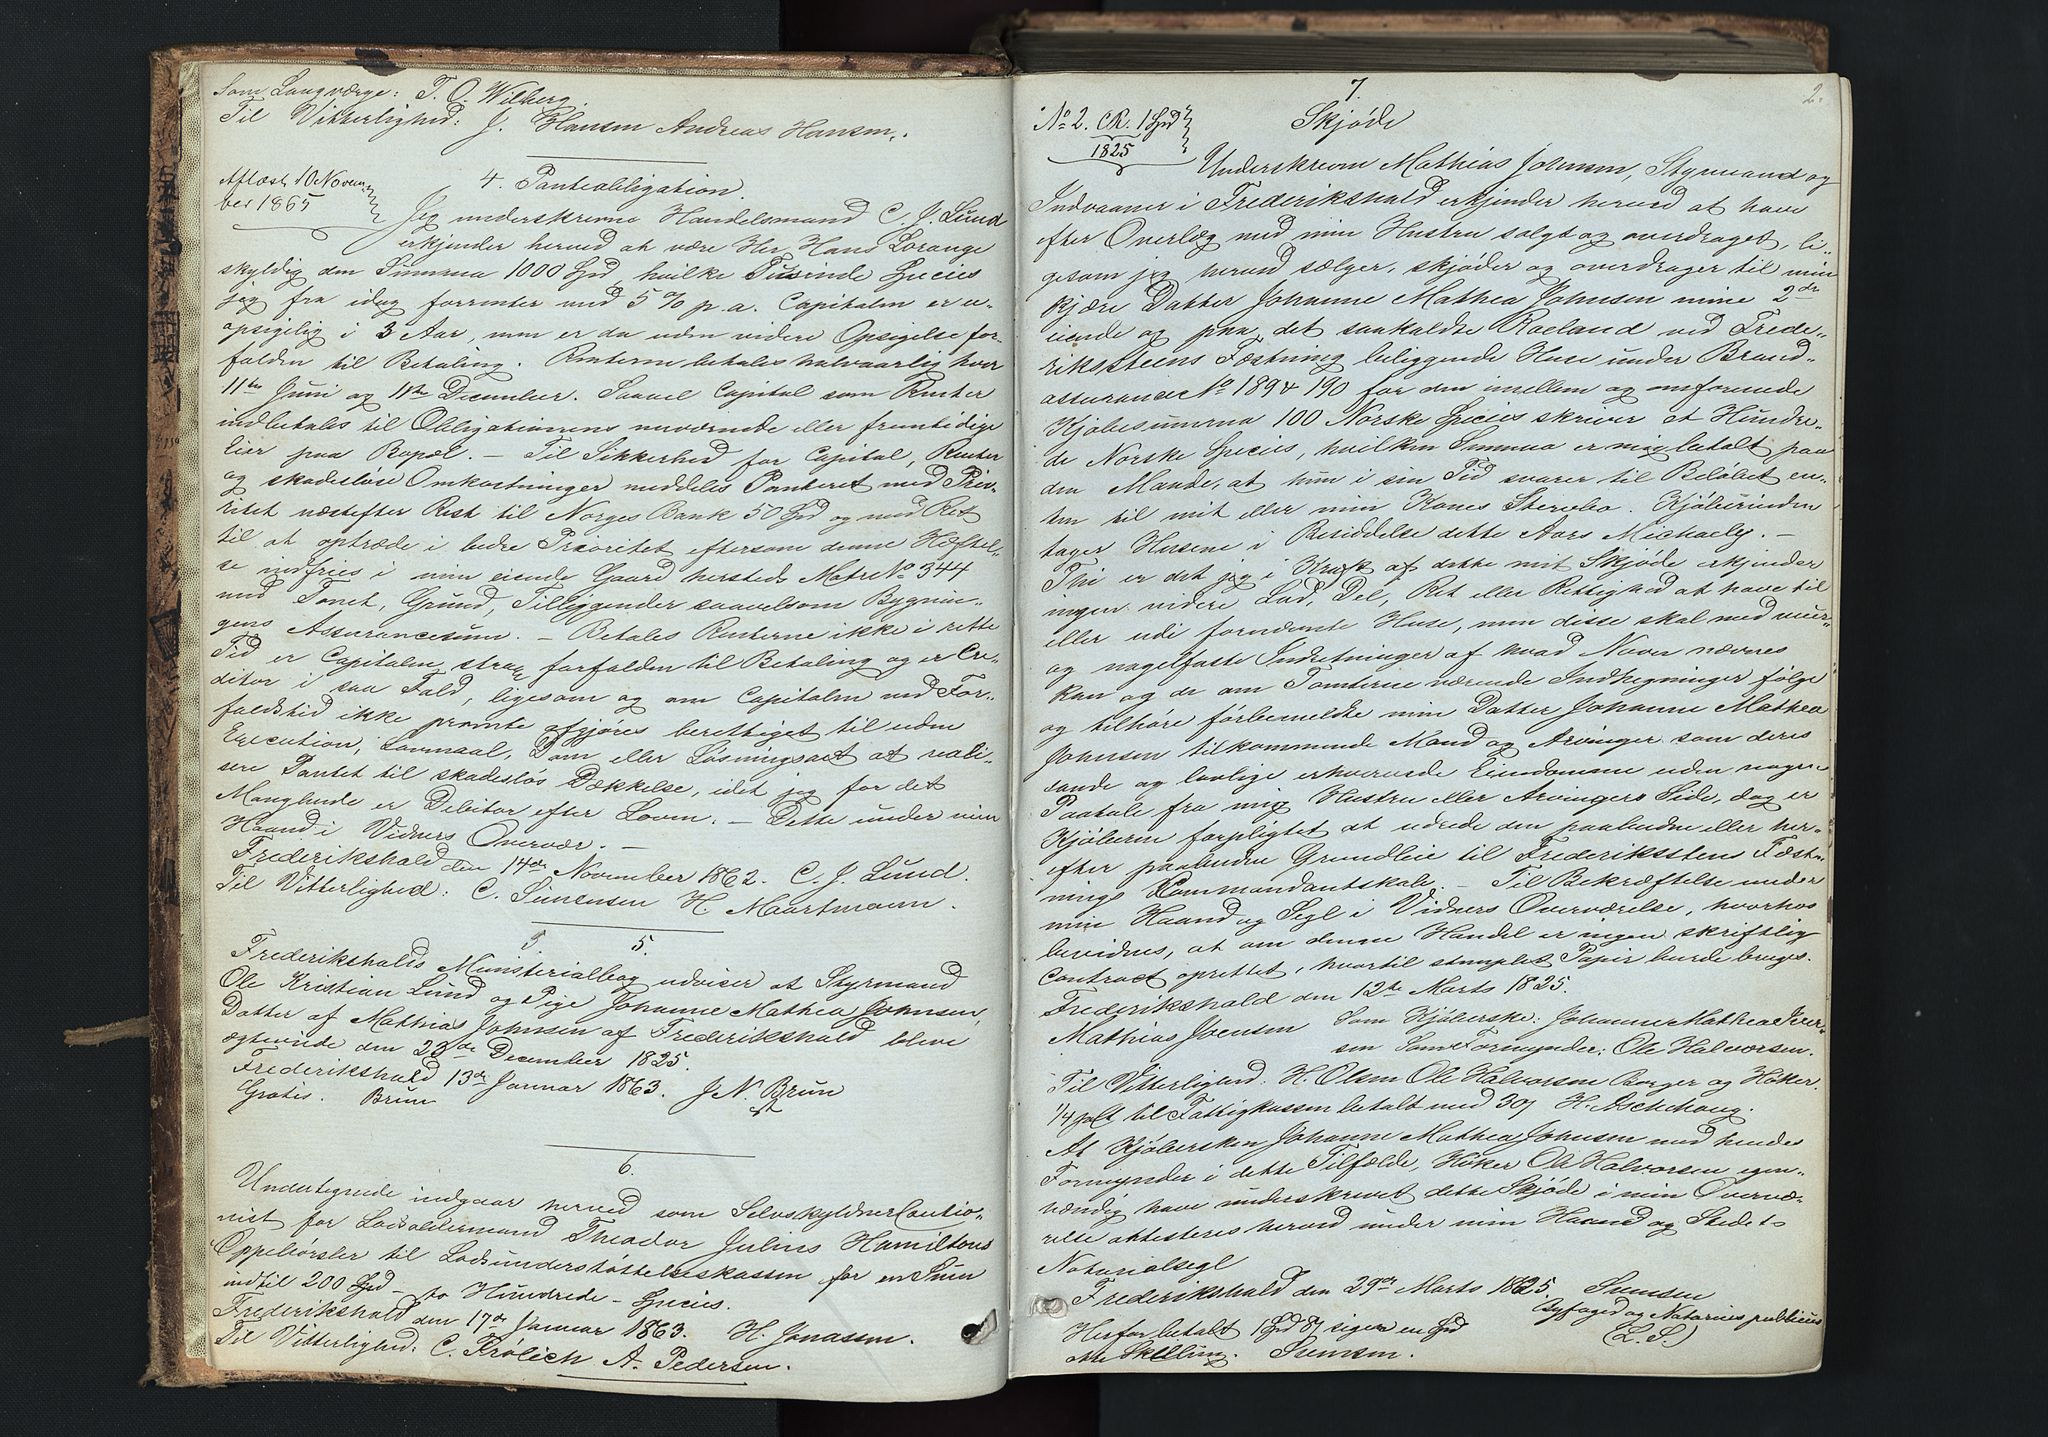 Som Laugværge: T. O. Wilberg.
Til Vitterlighed: J. Hansen Andreas Hansen.
Aflæst 10 Novem-
ber 1865
4. Panteobligation.
Jeg underskrevne Handelsmand C. J. Lund
erkjender herved at være Hr. Hans Lorange
skyldig den Summa 1000 Spd, hvilke Tusende Species
jeg fra idag forrenter med 5 % p. a. Capitalen er u-
opsigelig i 3 Aar, men er da uden videre Opsigelse for-
falden til Betaling. Renterne betales halvaarlig hver
11te Juni og 11te December. Saavel Capital som Renter
indbetales til Obligationens nuværende eller fremtidige
Eier paa Bopæl. — Til Sikkerhed for Capital, Renter
og skadesløse Omkostninger meddeles Panteret med Prio-
ritet næstefter Rest til Norges Bank 50 Spd og med Ret
til at optræde i bedre Prioritet eftersom denne Hæftel-
se indfries i min eiende Gaard hersteds Matr. No 344
med Tomt, Grund, Tilliggender saavelsom Bygnin-
gens Assurancesum. — Betales Renterne ikke i rette
Tid er Capitalen strax forfalden til Betaling og er Cre-
ditor i saa Fald, ligesom og om Capitalen ved For-
faldstid ikke promte afgjøres berettiget til uden
Execution, Lovmaal, Dom eller Løsningsact at reali-
sere Pantet til skadesløs Dækkelse, idet jeg for det
Manglende er Debitor efter Loven. — Dette under min
Haand i Vidners Overvær. —
Frederikshald den 14de November 1862. C. J. Lund.
Til Vitterlighed: C. Simensen H. Maartmann.
5. 5.
Frederikshalds Ministerialbog udviser at Styrmand
Ole Kristian Lund og Pige Johanne Mathea Johnsen,
Datter af Mathias Johnsen af Frederikshald bleve
ægteviede den 23de December 1825.
Frederikshald 13de Januar 1863. J. N. Brun
Gratis. Brun
6.
Undertegnede indgaar herved som Selvskyldner Cautio-
nist for Lodsoldermand Theodor Julius Hamiltons
Oppebørsler til Lodsunderstøttelseskassen for en Sum
indtil 200 Spd — to Hundrede — Species.
Frederikshald den 17de Januar 1863. H. Jonassen.
Til Vitterlighed: C. Frölich A. Pedersen.
2.
7.
No 2. CR. 1 Spd
1825
Skjøde
Underskreven Mathias Joensen, Styrmand og
Indvaaner i Frederikshald erkjender herved at have
efter Overlæg med min Hustru solgt og overdraget, li-
gesom jeg herved sælger, skjøder og overdrager til min
kjære Datter Johanne Mathea Johnsen mine 2de
eiende og paa det saakaldte Roeland ved Frede-
riksteens Fæstning beliggende Huse under Brand-
assurance No 189 & 190 for den imellem os omforenede
Kjøbesumma 100 Norske Species skriver et Hundre-
de Norske Species, hvilken Summa er mig betalt paa
den Maade, at hun i sin Tid svarer til Beløbet en-
ten til mit eller min Kones Stervbo. Kjøberinden
tager Husene i Besiddelse dette Aars Michaely. —
Thi er det jeg i Kraft af dette mit Skjøde erkjender
ingen videre Lod, Del, Ret eller Rettighed at have til
eller udi fornævnte Huse, men disse skal med mur-
og nagelfaste Indretninger af hvad Navn nævnes
kan og de om Tomterne værende Indhegninger følge
og tilhøre førbemeldte min Datter Johanne Mathea
Johnsen tilkommende Mand og Arvinger som deres
sande og lovlige erhvervede Eiendomme uden nogen
Paatale fra mig Hustru eller Arvingers Side, dog er
Kjøberen forpligtet at udrede den paabudne eller her-
efter paabudne Grundleie til Frederikstens Fæst-
nings Commandantskab. — Til Bekræftelse under
min Haand og Segl i Vidners Overværelse, hvorhos
bevidnes, at om denne Handel er ingen skriftlig
Contract oprettet, hvortil stemplet Papir burde bruges.
Frederikshald den 12te Marts 1825.
Mathias Joensen Som Kjøberske: Johanne Mathea Iver-
sen Som Formynder: Ole Halvorsen.
Til Vitterlighed: H. Olsen Ole Halvorsen Borger og Høker.
1/4 pct til Fattigkassen betalt med 30 ẞ H. Aschehoug.
At Kjøbersken Johanne Mathea Johnsen med hendes
Formynder i dette Tilfælde, Høker Ole Halvorsen egen-
hændig have underskrevet dette Skjøde i min Overvæ-
relse attesteres herved under min Haand og Stedets
Notarialsegl
Frederikshald den 29de Marts 1825. Svensen
Byfoged og Notarius publicus
(L. S.)
Herfor betalt 1 Spd 8 ẞ siger en Spd
otte Skilling. Svensen.